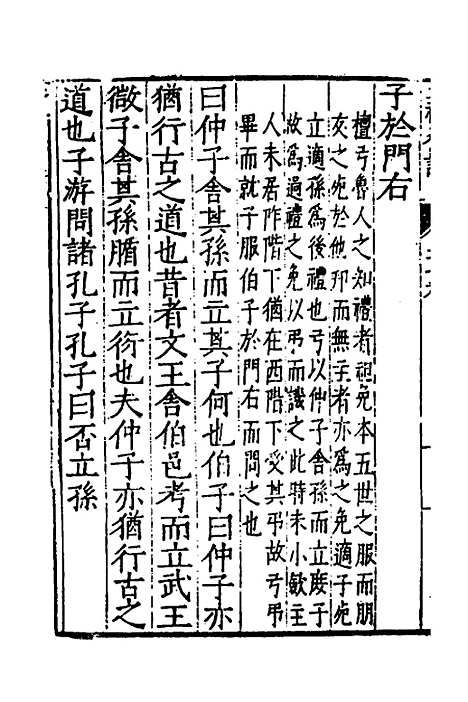 子於門右
檀弓魯人之知禮者袒免本五世之服而朋
友之死於他邦而無主者亦爲之免適子死
立適孫爲後禮也弓以仲子舍孫而立庶子
故爲過禮之免以弔而譏之此時未小斂主
人未居阼階下猶在西階下受其弔故弓弔
畢而就子服伯子於門右而問之也
曰仲子舍其孫而立其子何也伯子曰仲子亦
猶行古之道也昔者文王舍伯邑考而立武王
微子舍其孫腯而立衍也夫仲子亦猶行古之
道也子游問諸孔子孔子曰否立孫